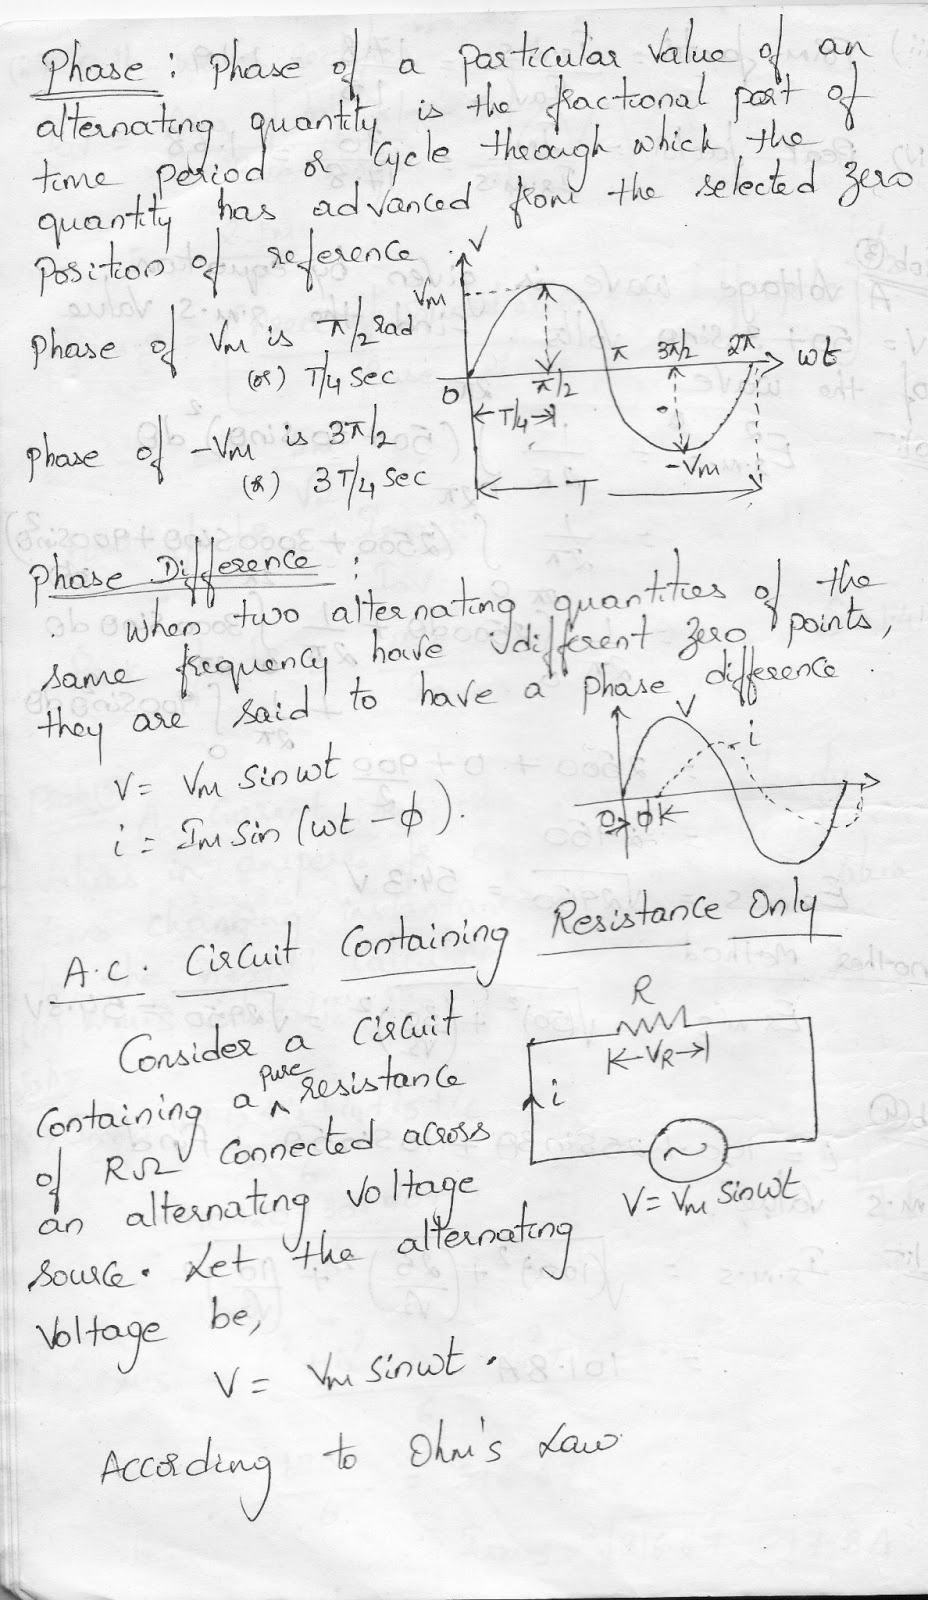 Phase : Phase of a particular value of an
alternating quantity is the fractional part of
time period or cycle through which the
quantity has advanced from the selected zero
position of reference.
V
Vm
Phase of Vm is π/2 rad
(or) T/4 sec
π 3π/2 2π ωt
0 π/2
T/4
Phase of -Vm is 3π/2
(or) 3T/4 sec
-Vm
T
Phase Difference :
When two alternating quantities of the
same frequency have different zero points,
they are said to have a phase difference.
V = Vm Sinωt
i = Im Sin (ωt - ϕ).
V
i
0 ϕ
A.C. Circuit Containing Resistance Only
Consider a circuit
containing a pure resistance
of RΩ connected across
an alternating voltage
source. Let the alternating
voltage be,
R
VR
i
V = Vm sinωt
V = Vm sinωt.
According to Ohm's Law